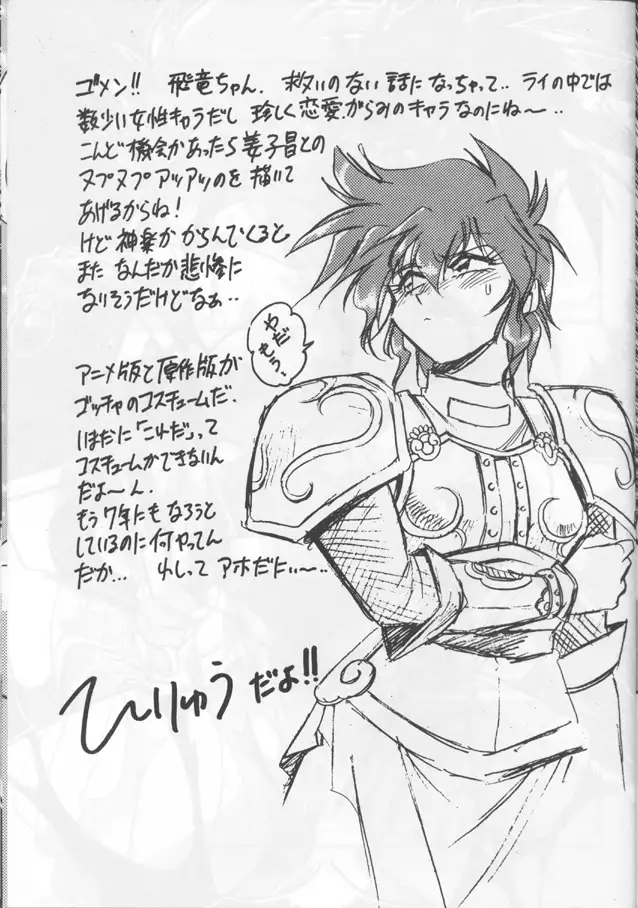 ゴメン!! 飛竜ちゃん. 救いのない話になっちゃって.. ライの中では
数少い女性キャラだし 珍しく恋愛がらみのキャラなのにね〜..
こんど機会があったら姜子昌との
ヌプヌプアツアツのを描いて
あげるからね!
けど神楽がからんでくると
また なんだか悲惨に
なりそうだけどなぁ..
やだ
もう.
アニメ版と原作版が
ゴッチャのコスチュームだ.
いまだに「これだ」って
コスチュームができないん
だよ〜ん.
もう7年にもなろうと
しているのに何やってん
だか... わしって アホだにぃ〜..
ひりゅうだよ!!